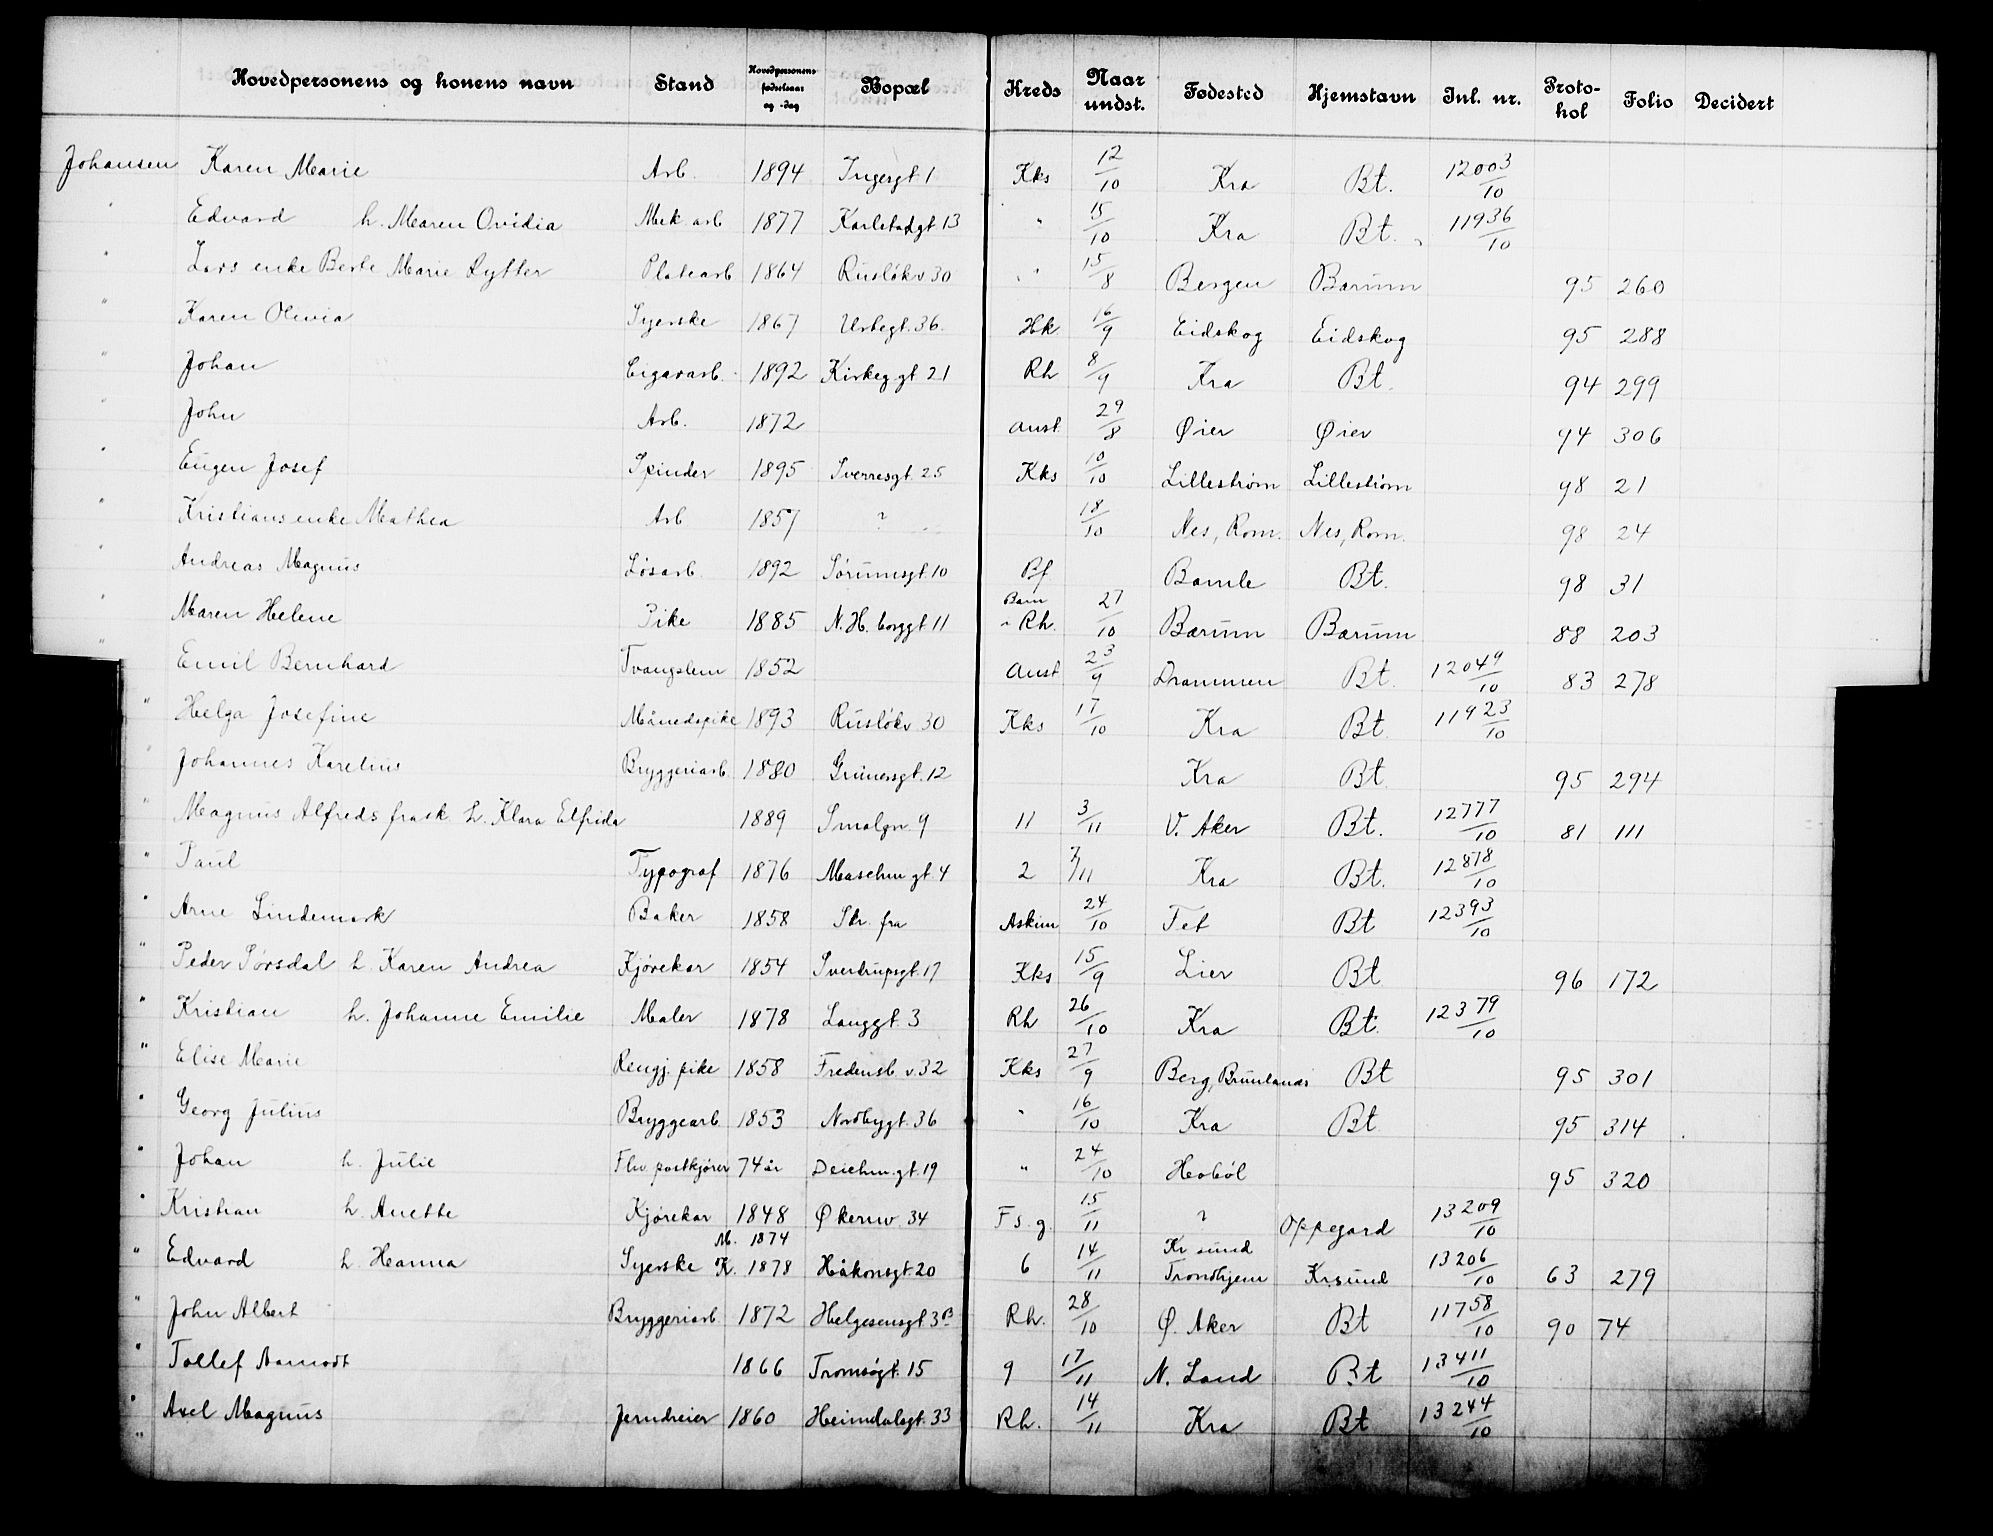 Hovedpersonens og konens navn Stand Hovedpersonens fødselsaar og -dag Bopæl Kreds Naar undst. Fødested Hjemstavn Inl. nr. Protokol Folio Decidert
Johansen Karen Marie Arb. 1894 Ingesgt 1 Kks 12/10 Kra Bt. 12003/10
" Edvard h. Maren Ovidia Mek arb 1877 Karlstadgt 13 " 15/10 Kra Bt. 11936/10
" Lars enke Berte Marie Rytter Platearb 1864 Rusløkv 30 " 15/8 Bergen Bærum 95 260
" Karen Olivia Syerske 1867 Urtegt. 36. Hk. 16/9 Eidskog Eidskog 95 288
" Johan Cigararb. 1892 Kirkeg gt 21 Rh 8/9 Kra Bt. 94 299
" John Arb. 1872 Anst. 29/8 Øier Øier 94 306
" Eugen Josef Spinder 1895 Sverresgt. 25 Kks 10/10 Lillestrøm Lillestrøm 98 21
" Kristians enke Mathea Arb 1857 ? 18/10 Nes, Rom. Nes, Rom. 98 24
" Andreas Magnus Løsarb. 1892 Sørumsgt. 10 Pf Bamle Bt. 98 31
" Maren Helene Pike 1885 N. H. borggt 11 Bærum Rh. 27/10 Bærum Bærum 88 203
" Emil Bernhard Tvangslem 1852 Anst 23/9 Drammen Bt. 12049/10 83 278
" Helga Josefine Månedspike 1893 Rusløkv 30 Kks 17/10 Kra Bt. 11923/10
" Johannes Karelius Bryggeriarb. 1880 Grünersgt. 12 Kra Bt. 95 294
" Magnus Alfreds frask. h. Klara Elfrida 1889 Smalgn 9 11 3/11 V. Aker Bt. 12777/10 81 111
" Paul Typograf 1876 gt. 4 2 7/11 Kra Bt. 12878/10
" Arne Lindemark Baker 1858 Skr. fra Askim 24/10 Fet Bt 12393/10
" Peder Sørsdal h. Karen Andrea Kjørekar 1854 Sverdrupsgt. 17 Kks 15/9 Lier Bt 96 172
" Kristian h. Johanne Emilie Maler 1878 Langgt. 3 Rh 26/10 Kra Bt. 12379/10
" Elise Marie Rengj. pike 1858 Fredensb. v. 32 Kks 27/9 Berg, Brunlanes Bt 95 301
" Georg Julius Bryggearb 1853 Nordbygt. 36 " 16/10 Kra Bt 95 314
" Johan h. Julie Fhv. postkjører 74 år Deichm. gt. 19 " 24/10 Hobøl 95 320
" Kristian h. Anette Kjørekar 1848 Økernv. 34 Fs. g. 15/11 ? Oppegård 13209/10
" Edvard h. Hanna Syerske M. 1874 K. 1878 Håkonsgt. 20 6 14/11 Kr sund Trondhjem Krsund 13206/10 63 279
" John Albert Bryggeriarb 1872 Helgesensgt. 3B Rh. 28/10 Ø. Aker Bt 11758/10 90 74
" Tollef Aamodt 1866 Tromsøgt. 15 9 17/11 N. Land Bt 13411/10
" Axel Magnus Jerndreier 1860 Heimdalsgt. 33 Rh. 14/11 Kra Bt 13244/10
"